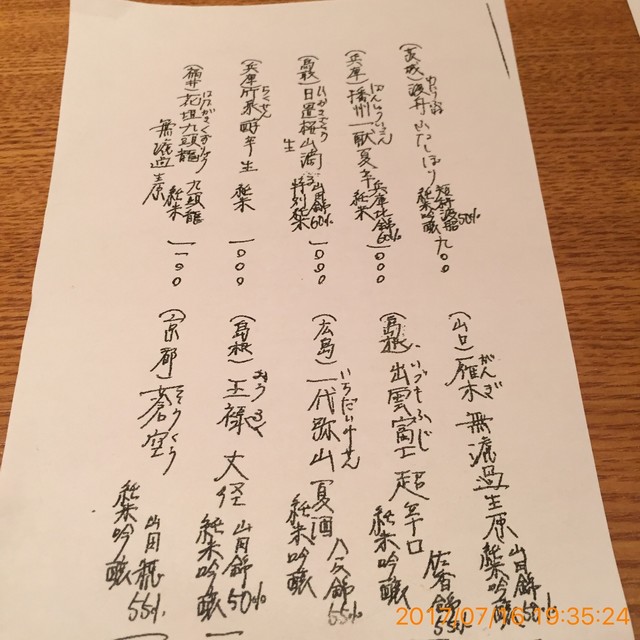 (茨城)渡舟
ふなしぼり
短稈渡船50%
純米吟醸
九〇〇
(兵庫)播州一献
ばんしゅういっこん
夏辛
兵庫北錦60%
純米
一〇〇〇
(鳥取)日置桜山滴る
ひおきざくら
生
山田錦60%
特別純米
一〇〇〇
(兵庫)
辛
生
純米
一〇〇〇
(福井)花垣九頭龍
はながきくずりゅう
九頭龍
純米
無濾過生原
一一〇〇
(山口)雁木
がんぎ
無濾過生原
山田錦50%
純米吟醸
(島根)出雲富士
いづもふじ
超辛口
佐香錦55%
純米吟醸
(広島)一代弥山
いちだいみせん
夏酒
八反錦55%
純米吟醸
(島根)王禄
おうろく
丈径
山田錦50%
純米吟醸
(京都)蒼空
そうくう
山田錦55%
純米吟醸
2017/07/16 19:35:24